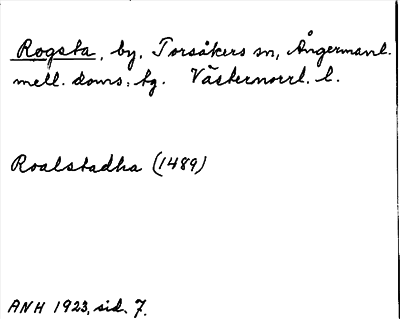 Rogsta, by, Torsåkers sn, Ångermanl.
mell. doms. tg. Västernorrl. l.
Roalstadha (1489)
ANH 1923, sid. 7.